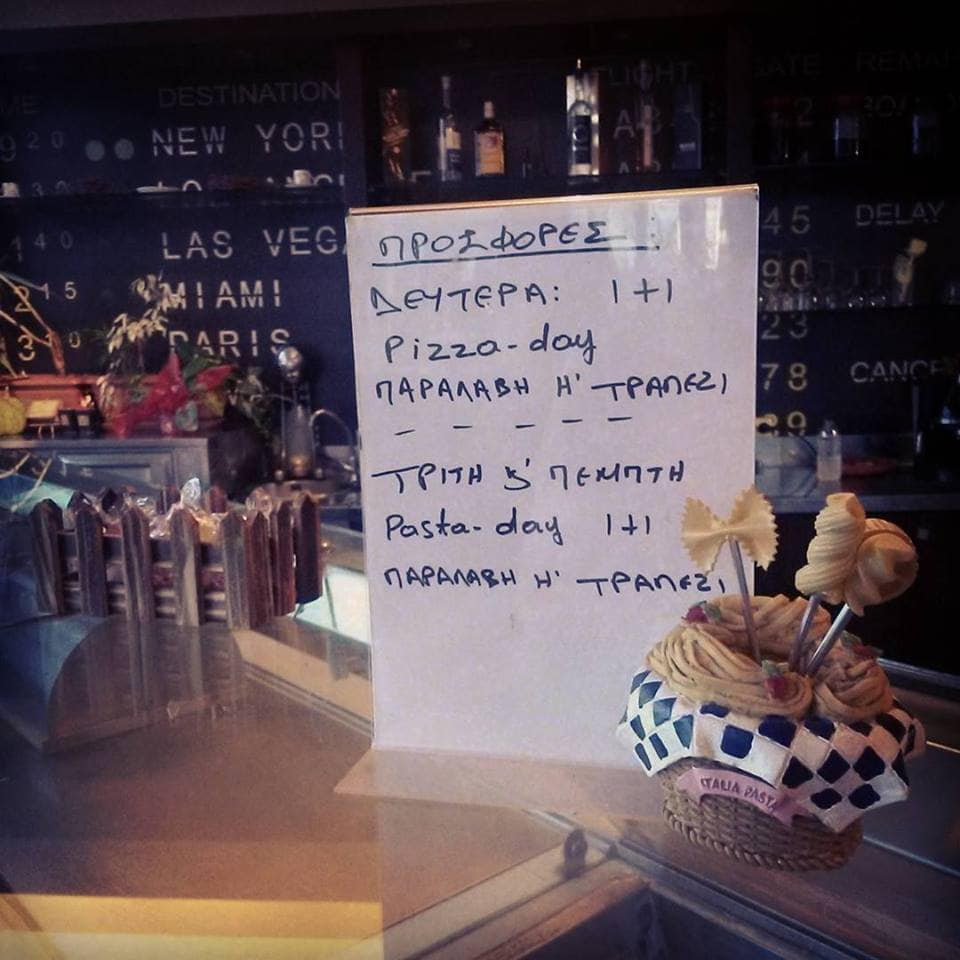 DESTINATION
NEW YORK
LAS VEGA
MIAMI
PARIS
FLIGHT
GATE
DELAY
45
90
23
78
ΠΡΟΣΦΟΡΕΣ :
ΔΕΥΤΕΡΑ: 1+1
Pizza-day
ΠΑΡΑΛΑΒΗ Η' ΤΡΑΠΕΖΙ
- - - - -
ΤΡΙΤΗ & ΠΕΜΠΤΗ
Pasta-day 1+1
ΠΑΡΑΛΑΒΗ Η' ΤΡΑΠΕΖΙ
ITALIA PASTA